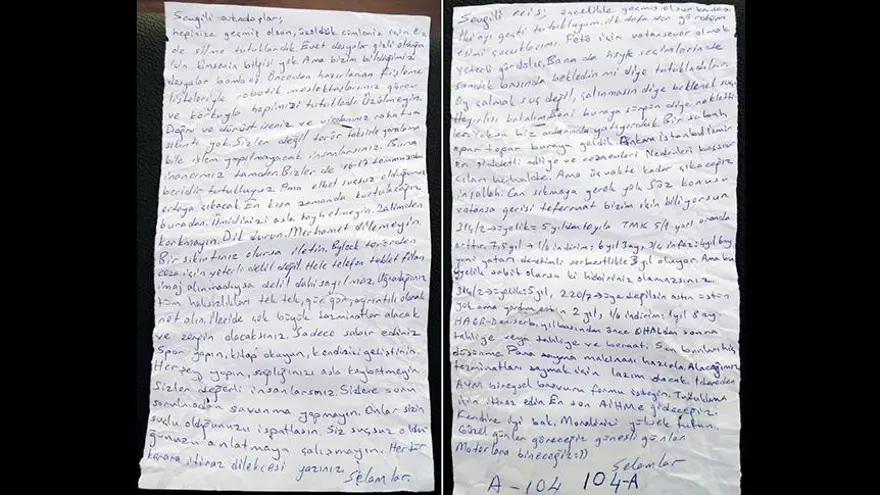 Sevgili arkadaşlar;
hepinize geçmiş olsun, üzüldük cümleniz için. Biz
de silme tutuklandık. Evet dosyalar gizli olduğu
için kimsenin bilgisi yok. Ama bizim bildiğimiz
dosyalar bomboş. Önceden hazırlanan fişleme
listeleriyle robotik meslektaşlarımız görev
ve korkuyla hepimizi tutukladı. Üzülmeyin.
Doğru ve dürüst iseniz ve vicdanınız rahatsa
sıkıntı yok. Sizlere değil terör taksirle yaralama
bile işlem yapılmayacak insanlarsınız. Buna
inancımız tamdır. Bizler de 16-17 temmuzdan
beridir tutukluyuz. Ama elbet suçsuz olduğumuz
ortaya çıkacak. En kısa zamanda kurtulacağız
buradan. Ümidinizi asla kaybetmeyin. Zalimden
korkmayın. Dik durun. Merhamet dilemeyin.
Bir sıkıntınız olursa iletin. Bylock
ceza için yeterli delil değil. Hele telefon tablet filan
imaj alınmadıysa delil dahi sayılmaz. Uğradığınız
tüm haksızlıkları tek tek, gün gün, ayrıntılı olarak
not alın. İleride çok büyük tazminatlar alacak
ve zengin olacaksınız. Sadece sabır ediniz
Spor yapın, kitap okuyun, kendinizi geliştirin.
Her şey yapın, sağlığınızı asla kaybetmeyin
Sizler değerli insanlarsınız. Sizlere soru
sorulmadan savunma yapmayın. Onlar sizin
suçlu olduğunuzu ispatlasın. Siz suçsuz oldu-
ğunuzu anlatmaya çalışmayın. Her tür
karara itiraz dilekçesi yazınız.
Selamlar.
Sevgili reis; öncelikle geçmiş olsun
İki ayı geçti tutukluyum. ilk defa dün gördüm
eşimi çocuklarımı. Fetö için vatansever olmak
yeterli gördüler. Bana da hsyk seçimlerinde
sandık başında bekledin mi diye tutukladılar.
Oy çalmak suç değil, çalınmasın diye beklemek suç
Hayırlısı bakalım. Beni buraya diye naklettiler
yoksa biz yatıyorduk. Bir sabah
apar topar buraya geldik. Ankara istanbul izmir
en şiddetli adliye ve cezaevleri Nedenleri
herhalde. Ama üç vakte kadar çıkacağız
inşallah. Can sıkmaya gerek yok. Söz konusu
vatansa gerisi teferruat bizim için biliyorsun
314/2 → üyelik = 5 yıldan 10 yıla TMK 5/1 yarı oranda
arttır. 7,5 yıl → 1/6 indirim = 6 yıl 3 ay. 3/4 infaz = 4 yıl 8 ay
yani yatarı denetimli serbestlikle 3 yıl oluyor. Ama bu
üyelik sabit olursa ki hiçbiriniz olamazsınız.
314/2 → üyelik = 5 yıl, 220/7 →
yok ama yardım etsin 2 yıl, 1/6 indirim: 1 yıl 8 ay
HAGB. yılbaşından önce OHALden sonra
tahliye veya tahliye ve beraat. Sen bunları hiç
düşünme Para sayma makinası hazırla. Alacağımız
tazminatları saymak için lazım olacak. İdareden
AYM bireysel başvuru formu isteyin. Tutuklama
için itiraz edin. En son AİHM'e gideceğiz.
Kendine iyi bak. Moralini yüksek tutun.
Güzel günler göreceğiz güneşli günler
Motorlara bineceğiz :))
Selamlar
A-104 104-A